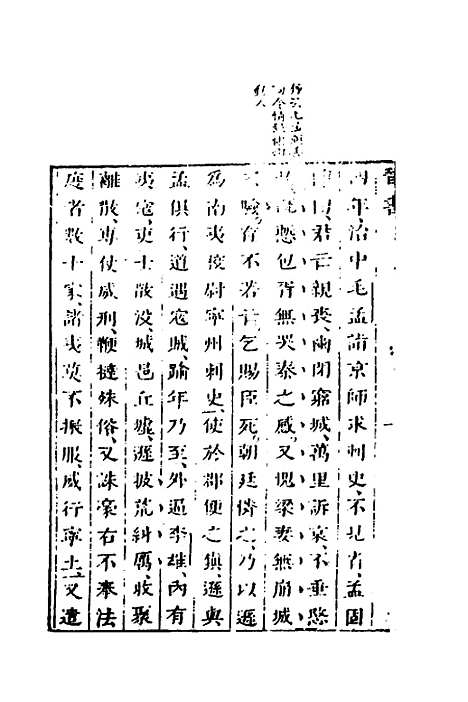 晉書
四年、治中毛孟詣京師求刺史、不見省、孟固
曰、君亡親喪、幽閉窮城、萬里訴哀、不垂愍
慙包胥無哭秦之感、又愧梁妻無崩城
驗、存不若亡、乞賜臣死、朝廷憐之、乃以遜
為南夷校尉寧州刺史、使於郡便之鎮、遜與
孟俱行、道遇寇賊、踰年乃至、外逼李雄、內有
夷寇、吏士散沒、城邑丘墟、遜披荒糾厲、收聚
離散、專仗威刑、鞭撻殊俗、又誅豪右不奉法
度者數十家、諸夷莫不振服、威行寧土、又遣